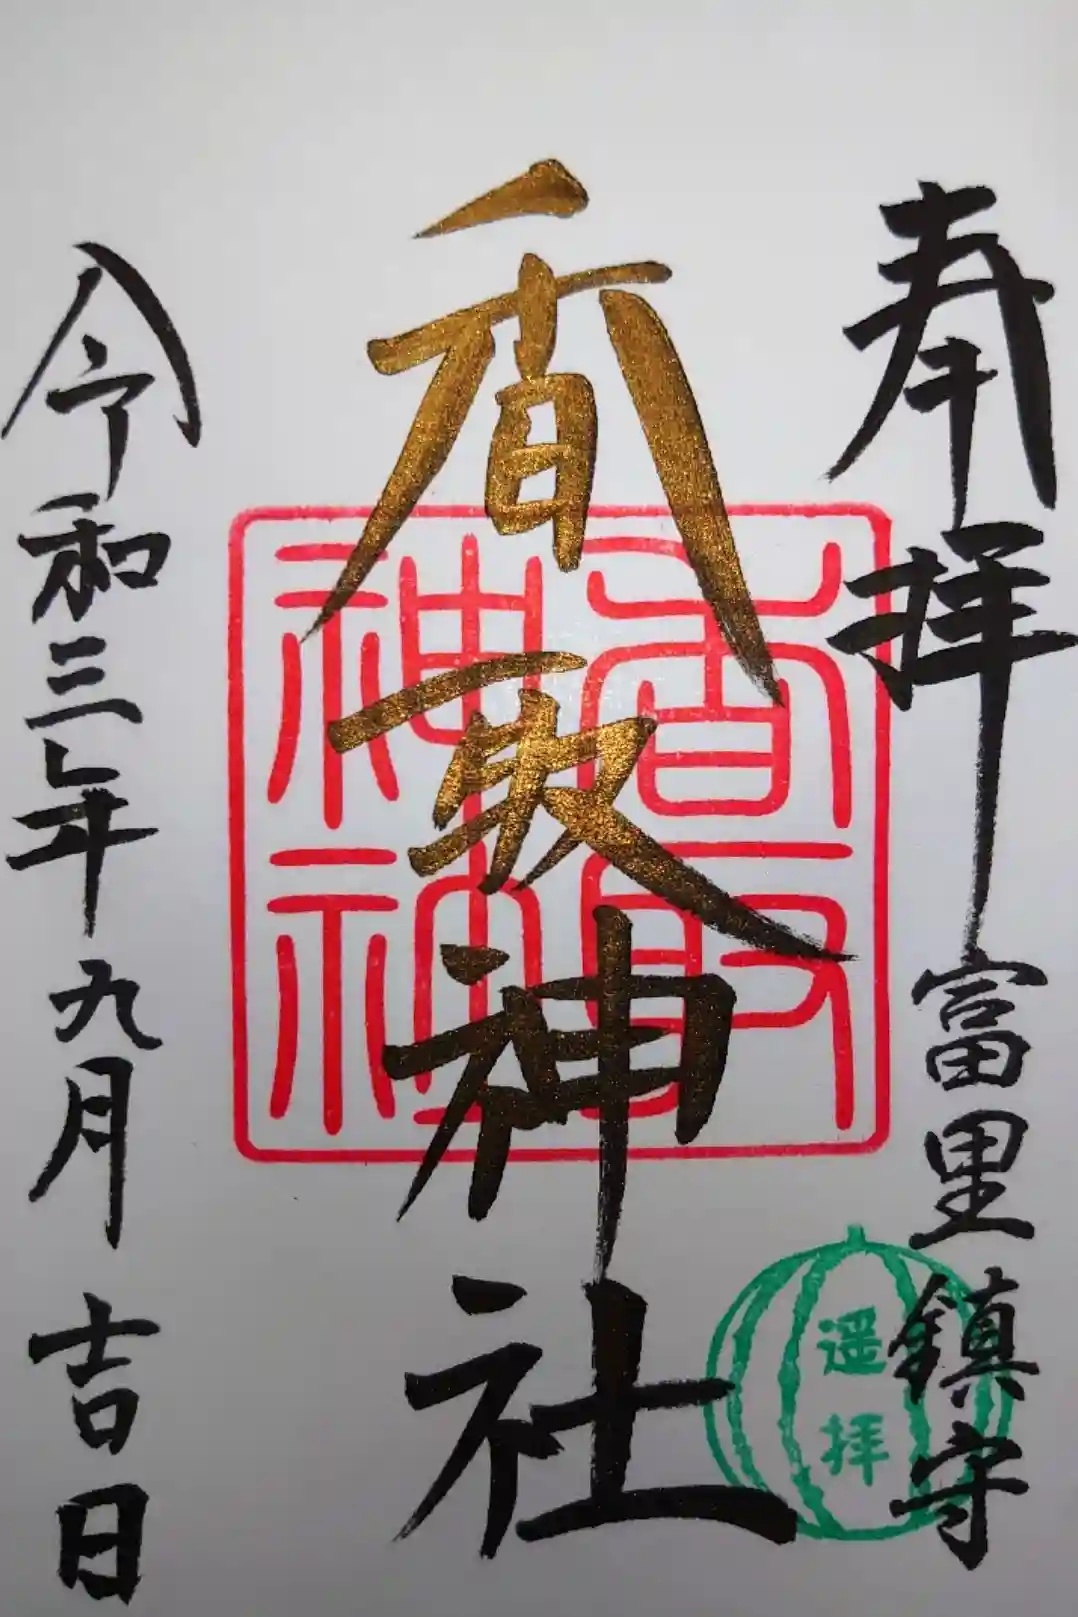 奉拝
富里鎮守
香取神社
香取
神社
遥拝
令和三年九月吉日